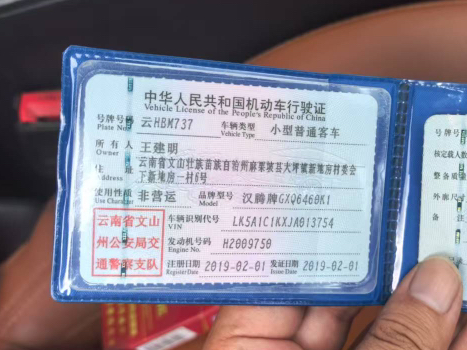 中华人民共和国机动车行驶证
Vehicle License of the People's Republic of China
号牌号码 云HBM737 车辆类型 小型普通客车
Plate No. Vehicle Type
所有人 王建明
Owner
住址 云南省文山壮族苗族自治州麻栗坡县大坪镇新地房村委会
Address 下新地房一村6号
使用性质 非营运 品牌型号 汉腾牌GXQ6460K1
Use Character Model
云南省文山 车辆识别代号 LK5A1C1KXJA013754
VIN
州公安局交 发动机号码 H2009750
Engine No.
通警察支队 注册日期 2019-02-01 发证日期 2019-02-01
Register Date Issue Date
号牌号
核定载人数
整备质
外廓尺